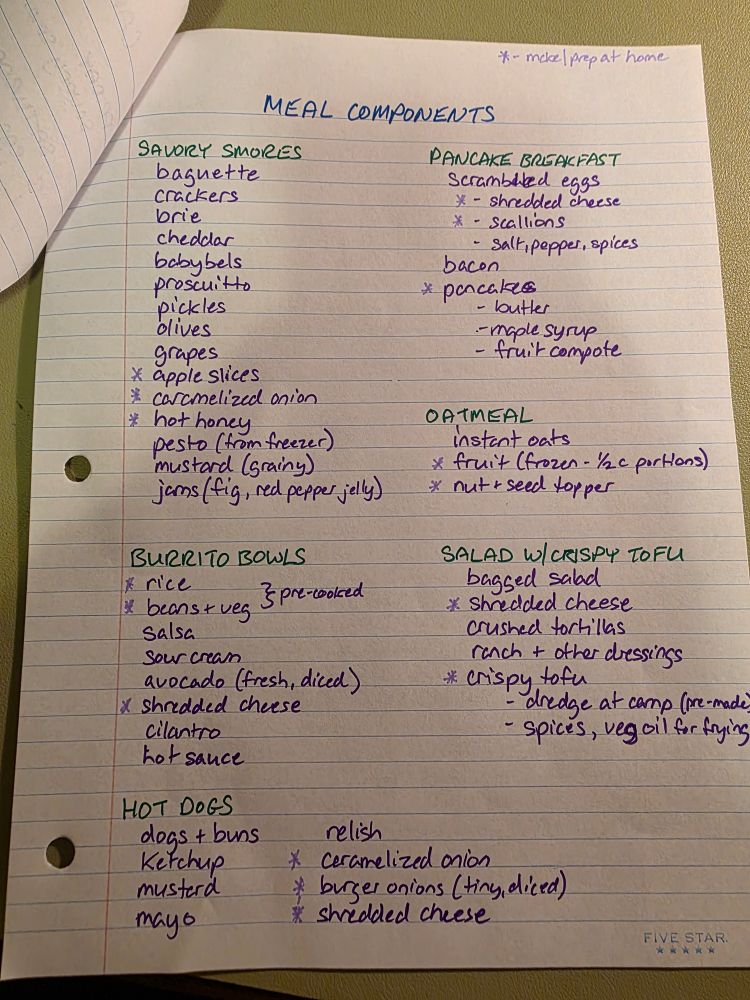 * - make/prep at home
MEAL COMPONENTS
SAVORY SMORES
baguette
crackers
brie
cheddar
babybels
proscuitto
pickles
olives
grapes
* apple slices
* caramelized onion
* hot honey
pesto (from freezer)
mustard (grainy)
jams (fig, red pepper jelly)
PANCAKE BREAKFAST
Scrambled eggs
* - shredded cheese
* - scallions
- salt, pepper, spices
bacon
* pancakes
- butter
- maple syrup
- fruit compote
OATMEAL
instant oats
* fruit (frozen - 1/2 c portions)
* nut + seed topper
BURRITO BOWLS
* rice
* beans + veg } pre-cooked
salsa
sour cream
avocado (fresh, diced)
* shredded cheese
cilantro
hot sauce
SALAD W/CRISPY TOFU
bagged salad
* shredded cheese
crushed tortillas
ranch + other dressings
* crispy tofu
- dredge at camp (pre-made)
- spices, veg oil for frying
HOT DOGS
dogs + buns
ketchup
mustard
mayo
relish
* caramelized onion
* burger onions (tiny, diced)
* shredded cheese
FIVE STAR.